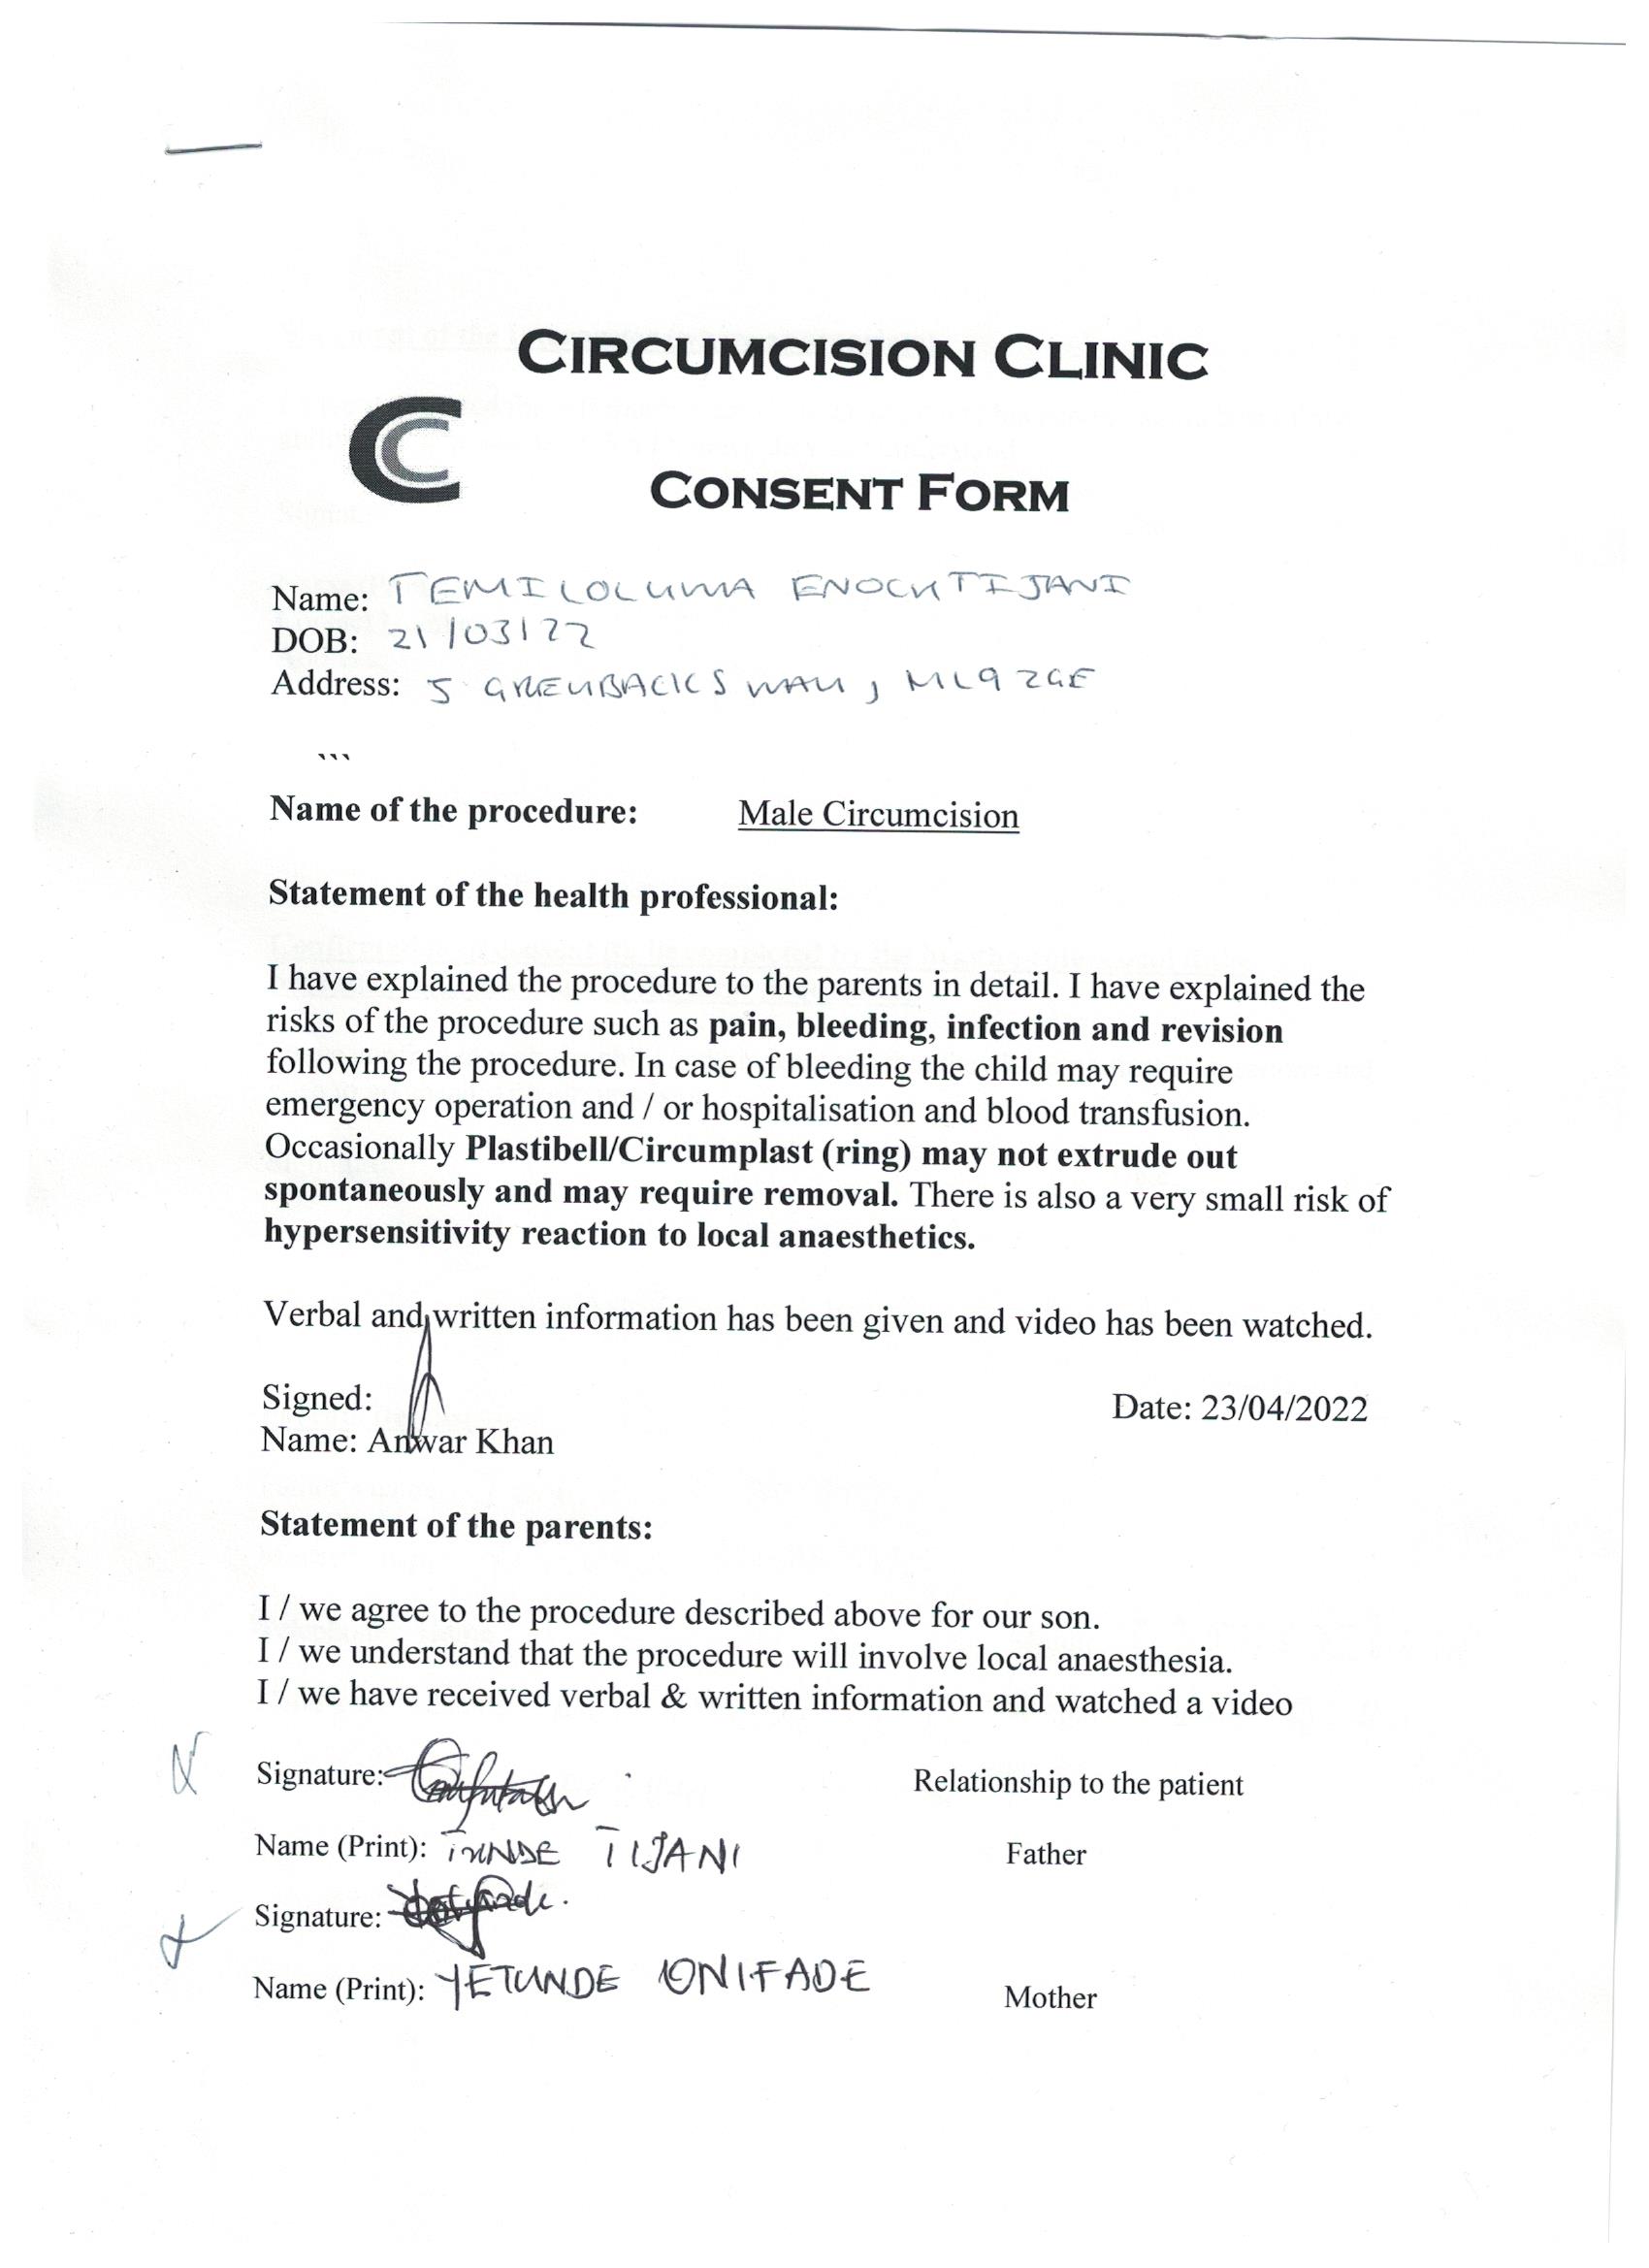 CIRCUMCISION CLINIC
CC
CONSENT FORM
Name: TEMILOLUWA ENOCH TIJANI
DOB: 21/03/22
Address: 5 GREENBACKS WAY, ML9 2GE
```
Name of the procedure: Male Circumcision
Statement of the health professional:
I have explained the procedure to the parents in detail. I have explained the
risks of the procedure such as pain, bleeding, infection and revision
following the procedure. In case of bleeding the child may require
emergency operation and / or hospitalisation and blood transfusion.
Occasionally Plastibell/Circumplast (ring) may not extrude out
spontaneously and may require removal. There is also a very small risk of
hypersensitivity reaction to local anaesthetics.
Verbal and written information has been given and video has been watched.
Signed: Date: 23/04/2022
Name: Anwar Khan
Statement of the parents:
I / we agree to the procedure described above for our son.
I / we understand that the procedure will involve local anaesthesia.
I / we have received verbal & written information and watched a video
Signature: Relationship to the patient
Name (Print): TUNDE TIJANI Father
Signature:
Name (Print): YETUNDE ONIFADE Mother